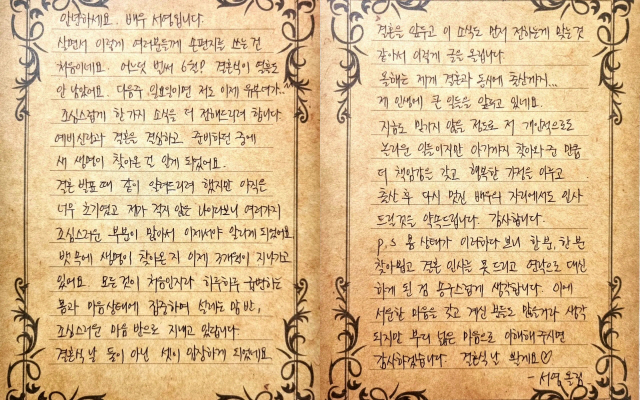 안녕하세요.. 배우 서영입니다.
살면서 이렇게 여러분들께 손편지를 쓰는건
처음이네요. 어느덧 벌써 6월? 결혼식이 열흘도
안 남았어요. 다음주 일요일이면 저도 이제 유부녀가..
조심스럽게 한가지 소식을 더 전해드리려 합니다
예비신랑과 결혼을 결심하고 준비하던 중에
새 생명이 찾아온 걸 알게 되었어요.
결혼 발표때 같이 알려드리려 했지만 아직은
너무 초기였고 제가 적지 않은 나이다보니 여러가지
조심스러운 부분이 많아서 이제서야 알리게 되었어요
뱃속에 생명이 찾아온지 이제 3개월이 지나가고
있어요. 모든것이 처음인지라 하루하루 급변하는
몸과 마음상태에 집중하며 설레는 맘 반,
조심스러운 마음 반으로 지내고 있답니다.
결혼식날 둘이 아닌 셋이 입장하게 되었네요.
결혼을 앞두고 이 소식도 먼저 전하는게 맞는것
같아서 이렇게 글을 올립니다.
올해는 제게 결혼과 동시에 출산까지...
제 인생에 큰 일들을 앞두고 있네요.
지금도 믿기지 않을 정도로 저 개인적으로도
놀라운 일들이지만 아가까지 찾아와준 만큼
더 책임감을 갖고 행복한 가정을 이루고
출산 후 다시 멋진 배우의 자리에서도 인사
드릴것을 약속드립니다. 감사합니다.
p.s 몸 상태가 이러하다 보니 한분, 한분
찾아뵙고 결혼 인사를 못 드리고 연락으로 대신
하게 된 점 송구스럽게 생각합니다. 이에
서운한 마음을 갖고 계신 분들도 많을거라 생각
되지만 부디 넓은 마음으로 이해해주시면
감사하겠습니다. 결혼식날 봴게요♡
- 서영 올림 -